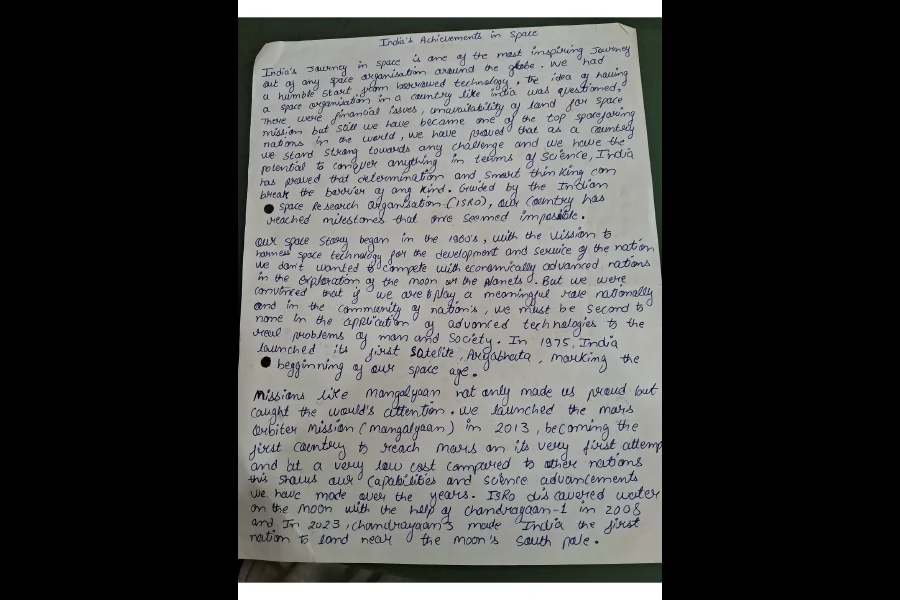 India's Achievements in Space
India's Journey in space is one of the most inspiring Journey
out of any space organisation around the globe. We had
a humble start from borrowed technology. The idea of having
a space organisation in a country like india was questioned,
There were financial issues, unavailability of land for space
mission but still we have became one of the top spacefaring
nations in the world, we have proved that as a country
we stand strong towards any challenge and we have the
potential to conquer anything in terms of Science, India
has proved that determination and smart thinking can
break the barrier of any kind. Guided by the Indian
Space Research organisation (ISRO), our country has
reached milestones that once seemed impossible.
Our space story began in the 1960's, with the Vission to
harness space technology for the development and service of the nation
we don't wanted to compete with economically advanced nations
in the exploration of the moon or the planets. But we were
convinced that if we are to play a meaningful role nationally
and in the community of nation's, we must be second to
none in the application of advanced technologies to the
real problems of man and Society. In 1975, India
launched its first satelite, Aryabhata, marking the
begginning of our space age.
Missions like Mangalyaan not only made us proud but
caught the world's attention. we launched the mars
Orbiter Mission (mangalyaan) in 2013, becoming the
first country to reach mars on its very first attemp
and at a very low cost compared to other nations
this shows our capabilities and science advancements
we have made over the years. ISRO discovered water
on the moon with the help of chandrayaan-1 in 2008
and In 2023, chandrayaan 3 made India the first
nation to land near the moon's south pole.